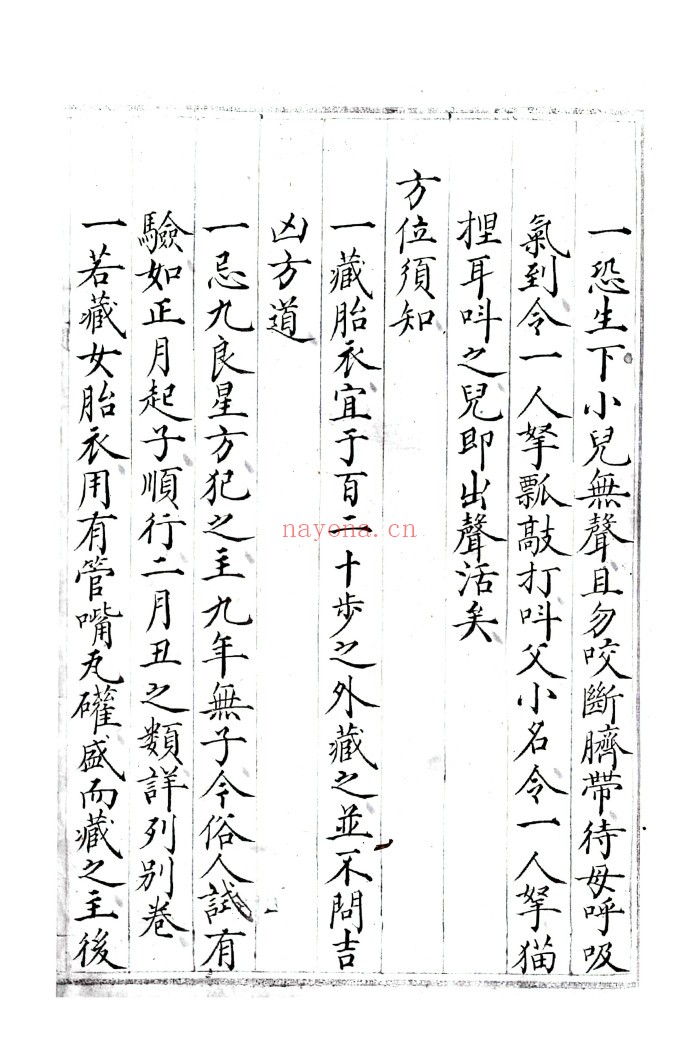 一恐生下小兒無聲且勿咬斷臍帶待母呼吸
氣到令一人拏瓢敲打呌父小名令一人拏猫
捏耳呌之兒即出聲活矣
方位須知
一藏胎衣宜于百二十步之外藏之並不問吉
凶方道
一忌九良星方犯之主九年無子今俗人試有
驗如正月起子順行二月丑之類詳列别卷
一若藏女胎衣用有管嘴瓦礶盛而藏之主後
nayona.cn